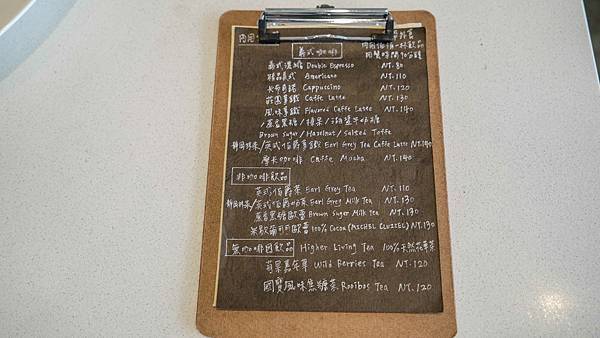 內用
內用低消一杯飲品
用餐時間90分鐘
義式咖啡
義式濃縮 Double Espresso NT.80
精品美式 Americano NT.110
卡布奇諾 Cappuccino NT.120
莊園拿鐵 Caffe Latte NT.130
風味拿鐵 Flavored Caffe Latte NT.140
/蒸香黑糖/榛果/海鹽牛奶糖
Brown Sugar/Hazelnut/Salted Toffe
靜岡抹茶/英式伯爵拿鐵 Earl Grey Tea Caffe Latte NT.140
摩卡咖啡 Caffe Mocha NT.140
非咖啡飲品
英式伯爵茶 Earl Grey Tea NT.110
靜岡抹茶/英式伯爵奶茶 Earl Grey Milk Tea NT.130
蒸香黑糖歐蕾 Brown Sugar Milk Tea NT.130
米歇爾可可歐蕾 100% Cocoa (MICHEL CLUIZEL) NT.130
無咖啡因飲品 Higher Living Tea 100%天然花草茶
莓果嘉年華 Wild Berries Tea NT.120
國寶風味焦糖茶 Rooibos Tea NT.120